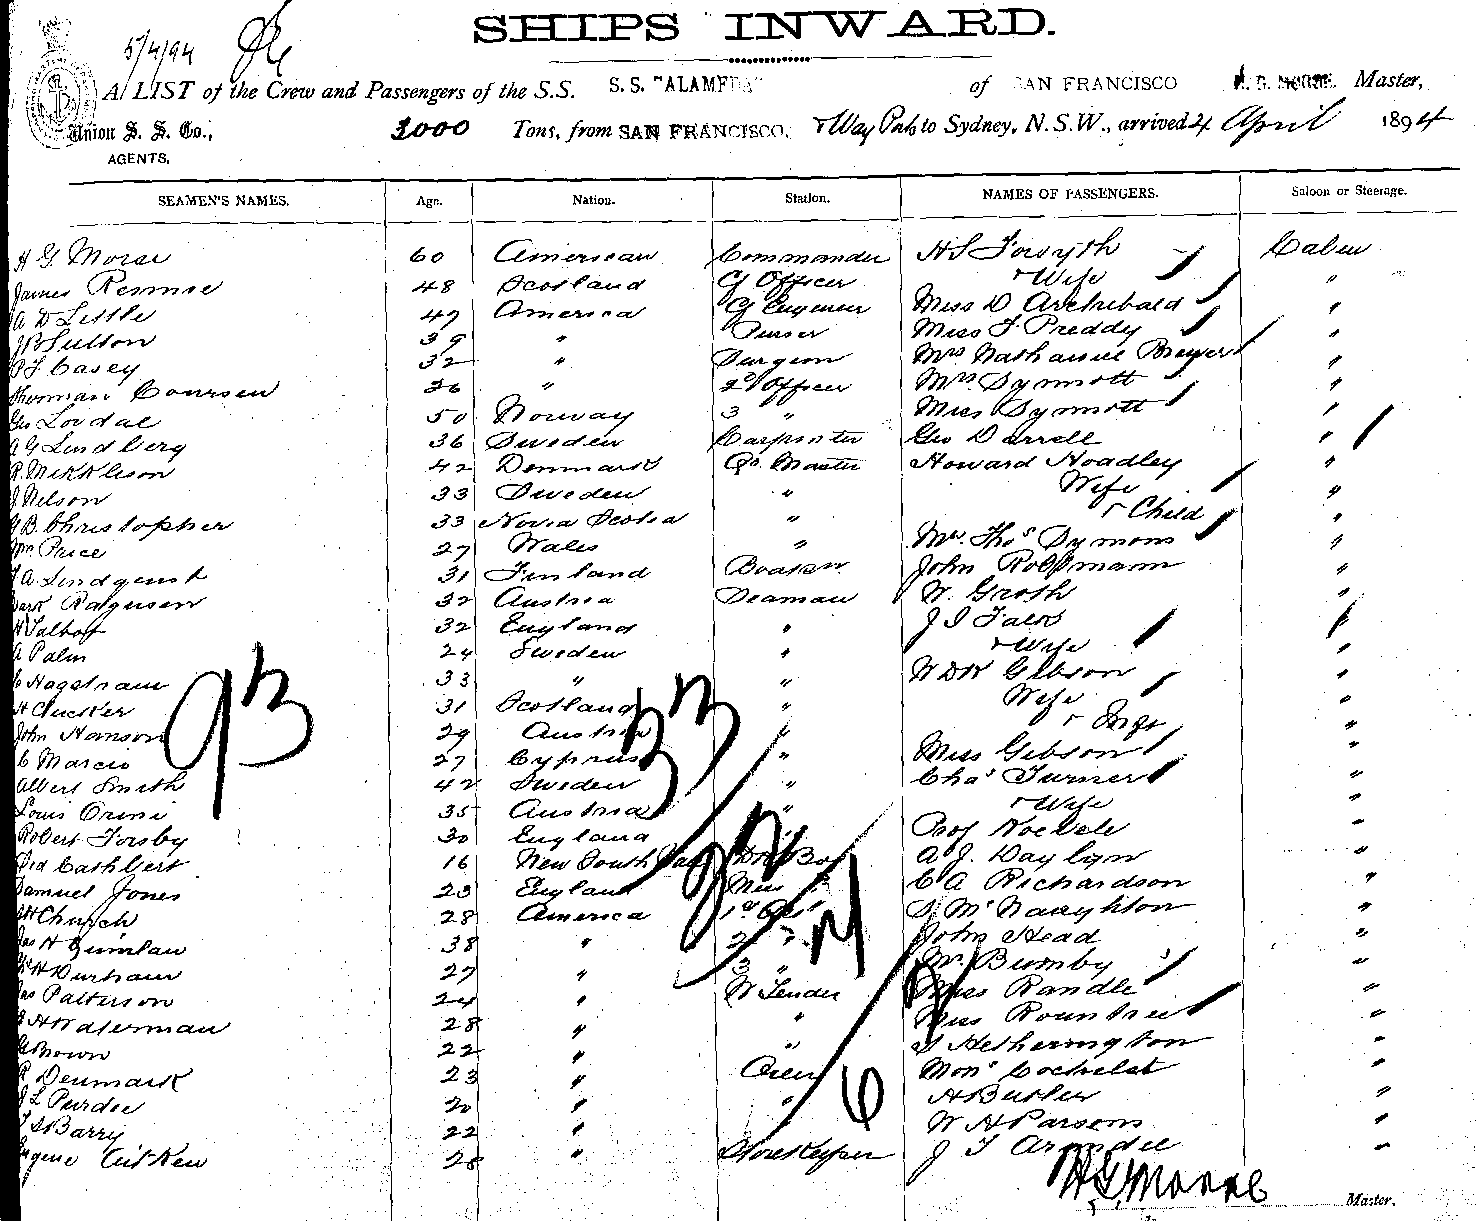 SHIPS INWARD.
5/4/94
A LIST of the Crew and Passengers of the S.S. S.S. "ALAMEDA" of SAN FRANCISCO Master,
Union S. S. Co., 3000 Tons, from SAN FRANCISCO, & Way Ports to Sydney, N.S.W., arrived 4 April 1894
AGENTS.
SEAMEN'S NAMES. Age. Nation. Station. NAMES OF PASSENGERS. Saloon or Steerage.
H G Morse 60 American Commander H S Forsyth Cabin
James Rennie 48 Scotland Cf Officer & Wife "
A D Little 47 America Cf Engineer Miss D Archibald "
J B Sutton 39 " Purser Miss F Preddy "
Casey 32 " Surgeon Mrs Nathaniel "
Sherman Coursen 26 " 2d Officer Mrs Symmott "
Geo Lovdal 50 Norway 3 " Miss Symmott "
A G Lindberg 36 Sweden Carpenter Geo Darrell "
R. Mikklson 42 Denmark Qr. Master Howard Hoadley "
J Nelson 33 Sweden " Wife "
G B Christopher 33 Nova Scotia " & Child "
Wm Price 27 Wales " Mr. Thos Symons "
A. Lindquist 31 Finland Boats'n John "
32 Austria Seaman W. Groth "
H Talbot 32 England " J I Falk "
A Palm 24 Sweden " & Wife "
C Hagstram 33 " " W D K Gibson "
H Clucker 31 Scotland " Wife "
John Hanson 29 Austria " & Inft "
C Marcio 27 Cyprus " Miss Gibson "
Albert Smith 42 Sweden " Chas Turner "
Louis Orsini 35 Austria " & Wife "
Robert Forsby 30 England Prof "
Cathbert 16 New South Boy A. J. "
Samuel Jones 23 England Mess C A Richardson "
Church 28 America 1st Asst McNaughton "
Jas H Quinlan 38 " 2 " John Head "
H Durham 27 " 3 " Mr. Bumby "
Jas Patterson 24 " W Tender Miss Randle "
H Waterman 28 " " Miss Rountree "
G Brown 22 " " Hetherington "
R Denmark 23 " Oiler Mons "
J L Purdie 20 " " H Butler "
T S Barry 22 " W H Parsons "
Eugene Aitken 28 " Storekeeper J T "
93
33
6
H G Morse
Master.